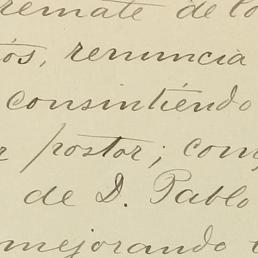 remate de lo
ós, renuncia
consintiendo
r postor; con
de D. Pablo
mejorando